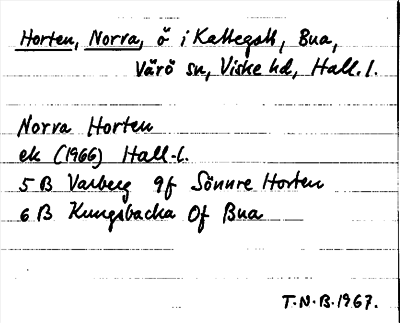 Horten, Norra, ö i Kattegatt, Bua,
Värö sn, Viske hd, Hall. l.
Norra Horten
ek (1966) Hall-l.
5 B Varberg 9f Sönnre Horten
6 B Kungsbacka 0f Bua
T.N.B.1967.